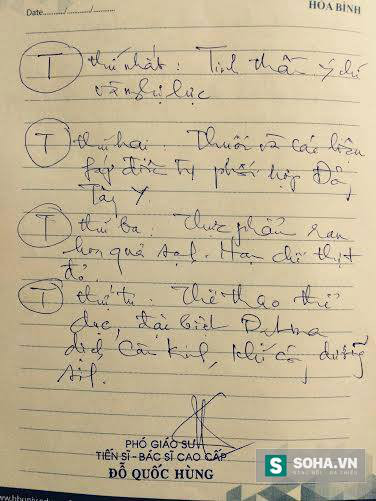 Date....../....../......
HÒA BÌNH
T thứ nhất : Tinh thần ý chí
và nghị lực
T thứ hai : Thuốc và các biện
fáp điều trị phối hợp Đông
Tây Y.
T thứ ba : Thực phẩm rau
hoa quả sạch. Hạn chế thịt
đỏ.
T thứ tư : Thể thao thể
dục, đặc biệt
dịch Cân Kinh, khí công dưỡng
sinh.
PHÓ GIÁO SƯ
TIẾN SĨ - BÁC SĨ CAO CẤP
ĐỖ QUỐC HÙNG
S SOHA.VN